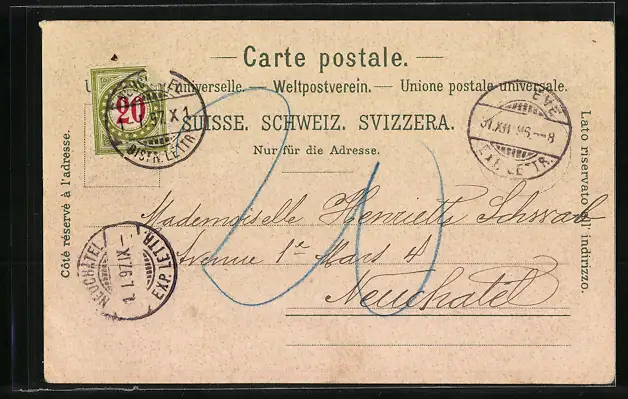 — Carte postale. —
universelle. — Weltpostverein. — Unione postale universale.
SUISSE. SCHWEIZ. SVIZZERA.
Nur für die Adresse.
Côté réservé à l'adresse.
Lato riservato all' indirizzo.
20
DISTR. LETTR.
31.XII.96.–8
EXP. LETTR.
NEUCHATEL
1.I.97.IX–
EXP. LETTR.
20
Mademoiselle Henriette Schwab
Avenue 1er Mars 4
Neuchatel